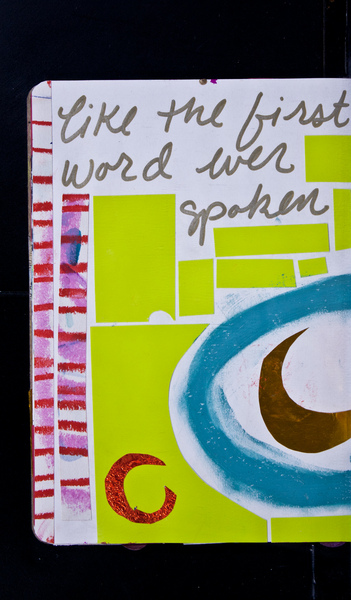 like the first
word ever
spoken